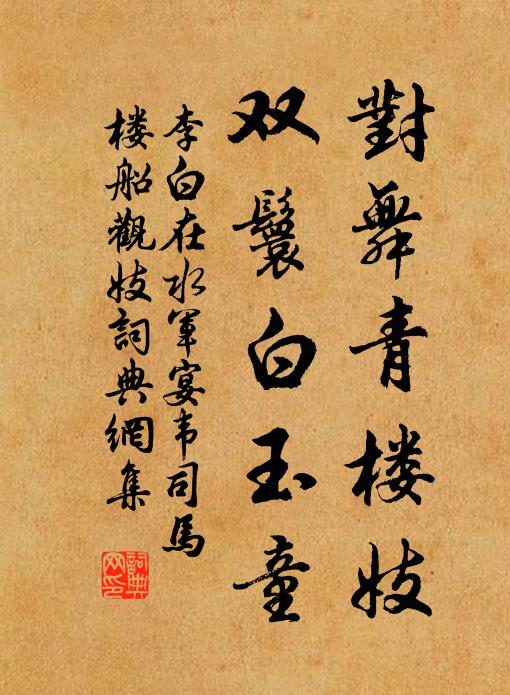 對舞青楼妓
双鬟白玉童
李白在水軍宴韦司馬
楼船觀妓詞典網集
詞典
网印